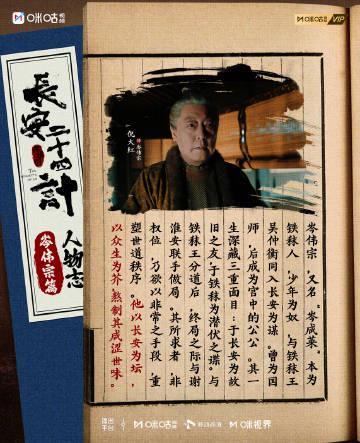 咪咕视频
咪咕视频 VIP
長安二十四計
人物志
岑伟宗篇
倪大红
饰 岑伟宗
岑伟宗,又名,岑成莱。本为
铁秣人,少年为奴,与铁秣王
吴仲衡同入长安为谋。曾为国
师,后成为宫中的公公。其一
生深藏三重面目:于长安为故
旧之友;于铁秣为潜伏之谍。与
铁秣王分道后,终局之际与谢
淮安联手做局。其所求者,非
权位,乃欲以非常之手段,重
塑世道秩序。他以长安为坛,
以众生为芥,熬制其咸涩世味。
咪咕视频
移动高清
咪咕视界